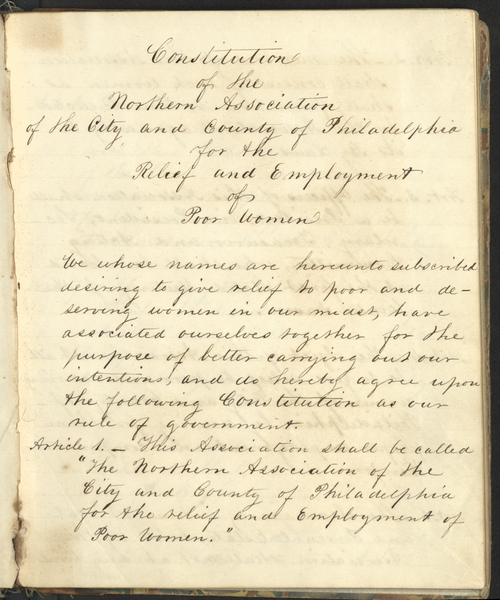 Constitution
of the
Northern Association
of the City and County of Philadelphia
for the
Relief and Employment
of
Poor Women
We whose names are hereunto subscribed
desiring to give relief to poor and de-
serving women in our midst, have
associated ourselves together for the
purpose of better carrying out our
intentions, and do hereby agree upon
the following Constitution as our
rule of government.
Article 1. — This Association shall be called
"The Northern Association of the
City and County of Philadelphia
for the relief and Employment of
Poor Women."